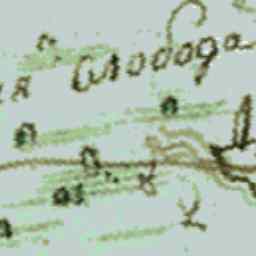 ая Слобода